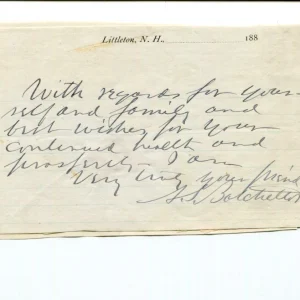 Littleton, N. H., 188
With regards for your-
self and family and
best wishes for your
continued health and
prosperity I am
Very truly your friend
Batchellor